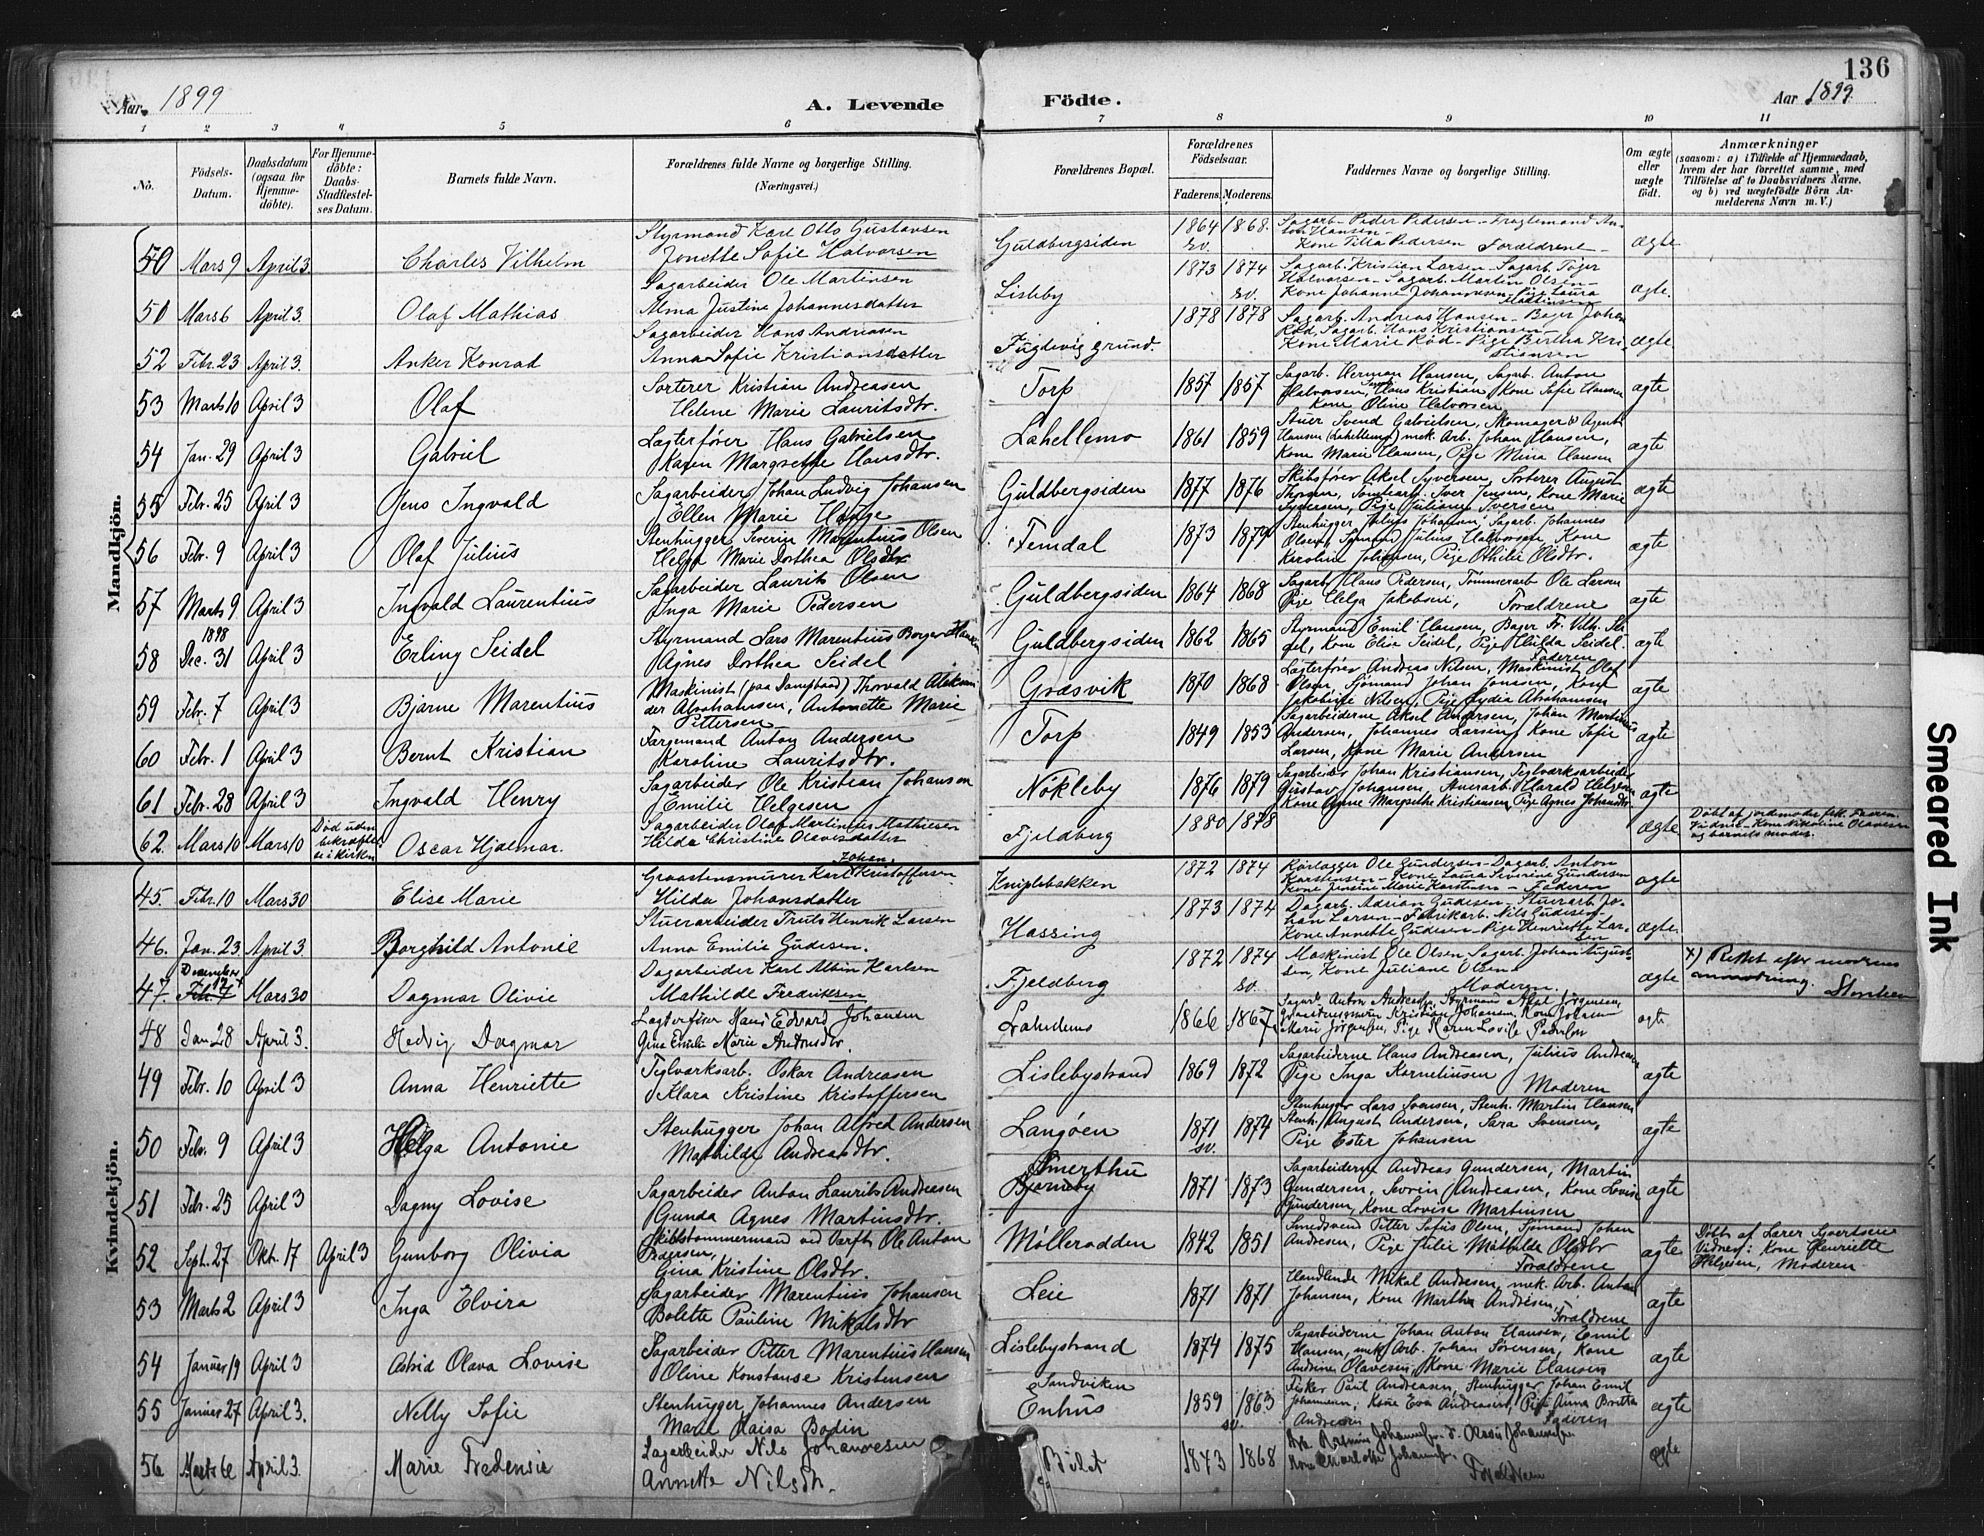 136
Aar 1899 A. Levende Födte. Aar 1899
1 2 3 4 5 6 7 8 9 10 11
No. Födsels-Datum. Daabsdatum (ogsaa for Hjemme-döbte). For Hjemme-döbte: Daabs-Stadfæstel-ses Datum. Barnets fulde Navn. Forældrenes fulde Navne og borgerlige Stilling. (Næringsvei.) Forældrenes Bopæl. Forældrenes Födselsaar. Faderens. Moderens. Faddernes Navne og borgerlige Stilling. Om ægte eller uægte födt. Anmærkninger (saasom: a) i Tilfælde af Hjemmedaab, hvem der har forrettet samme, med Tilföielse af to Daabsvidners Navne, og b) ved uægtefödte Börn An-melderens Navn m. V.)
Mandkjön.
50 Mars 9 April 3. Charles Vilhelm Styrmand Karl Otto Gustavsen Jonette Sofie Halvorsen Guldbergsiden 1864 sv. 1868. Sagarb. Peder Pedersen - Fragtemand An-ton Hansen - Kone Tilla Pedersen Forældrene - ægte
51 Mars 6 April 3. Olaf Mathias Sagarbeider Ole Martinsen Alma Justine Johannesdatter Lisleby 1873 1874 sv. Sagarb. Kristian Larsen - Sagarb. Töger Halvorsen - Sagarb. Martin Olsen - Kone Johanne Johannesen - Pige Laura Martinsen ægte.
52 Febr. 23 April 3. Anker Konrad Sagarbeider Hans Andreasen Anna Sofie Kristiansdatter Fuglevig grund. 1878 1878 Sagarb. Andreas Hansen - Bager Johan Röd, Sagarb. Hans Kristiansen - Kone Marie Röd - Pige Bertha Kri-stiansen ægte
53 Marts 10 April 3 Olaf Sorterer Kristian Andreasen Helene Marie Lauritsdtr. Torp 1857 1857 Sagarb. Herman Hansen, Sagarb. Anton Halvorsen, Hans Kristian, Kone Sofie Hansen Kone Oline Halvorsen ægte
54 Jan. 29 April 3 Gabriel Lagterförer Hans Gabrielsen Karen Margrethe Hansdtr. Lahellemo 1861 1859 Stuer Svend Gabrielsen, Skomager Agent Hansen (Lahellemo) mek. Arb. Johan Hansen, Kone Marie Hansen, Pige Mina Hansen ægte
55 Febr. 25 April 3 Jens Ingvald Sagarbeider Johan Ludvig Johansen Ellen Marie Hauge Guldbergsiden 1877 1876 Skibsförer Aksel Syversen, Sorterer August Thorsen, Tomtearb. Iver Jensen, Kone Marie Syversen, Pige Juliane Iversen ægte
56 Febr. 9 April 3 Olaf Julius Stenhugger Severin Marentius Olsen Helga Marie Dorthea Olsdtr Femdal 1873 1879 Stenhugger Julius Johansen, Sagarb. Johannes Olsen, Sjömand Julius Halvorsen, Kone Karoline Johansen, Pige Othilie Olsdtr. ægte
57 Marts 9 April 3 Ingvald Laurentius Sagarbeider Laurits Olsen Inga Marie Pedersen Guldbergsiden 1864 1868 Sagarb. Hans Pedersen, Tömmerarb Ole Larsen Pige Helga Jakobsen, Forældrene ægte
58 1898 Dec. 31 April 3 Erling Seidel Styrmand Lars Marentius Borger Hansen Agnes Dorthea Seidel Guldbergsiden 1862 1865 Styrmand Emil Hansen, Bager Fr. Vilh. Sei-del, Kone Elise Seidel, Pige Hilda Seidel. Faderen ægte
59 Febr. 7 April 3 Bjarne Marentius Maskinist (paa Dampbaad) Thorvald Aleksan-der Abrahamsen, Antonette Marie Pettersen Græsvik 1870 1868 Lagterförer Andreas Nilsen, Maskinist Olaf Olsen, Sjömand Johan Jonssen, Kone Jakobine Nilsen, Pige Lydia Abrahamsen ægte
60 Febr. 1 April 3 Bernt Kristian Færgemand Anton Andersen Karoline Lauritsdtr. Torp 1849 1853 Sagarbeiderne Aksel Andersen, Johan Martinus Andersen, Johannes Larsen, Kone Sofie Larsen, Kone Marie Andersen ægte
61 Febr. 28 April 3 Ingvald Henry Sagarbeider Ole Kristian Johansen Emilie Helgesen Nökleby 1876 1879 Sagarbeider Johan Kristiansen, Teglværksarbeider Gustav Johansen, Stuerarb. Harald Helgesen Kone Anne Margrethe Kristiansen, Pige Agnes Johansdtr ægte
62. Mars 10 Mars 10 Död uden bekræftel-se i kirken Oscar Hjalmar. Sagarbeider Olaf Martinius Mathiesen Hilda Christine Olavesdatter Fjeldberg 1880 1878 ægte Döbt af jordmoder Vidner - Kone Karoline Olavesen og barnets moder.
Kvindekjön.
45. Febr. 10 Mars 30 Elise Marie Graastensmurer Karl Johan Kristoffersen Hilda Johansdatter Kniplebakken 1872 1874 Rörlægger Ole Gundersen - Dagarb. Anton Karstensen - Kone Laura Severine Gundersen Kone Jensine Marie Karstensen - Faderen ægte
46. Jan. 23. April 3. Borghild Antonie Stuerarbeider Truls Henrik Larsen Anna Emilie Gudesen. Hassing 1873 1874 Dagarb. Adrian Gudesen - Stuerarb. Jo-han Larsen - Fabrikarb. Nils Gudesen - Kone Annette Gudesen - Pige Henriette Lar-sen ægte.
47. December 12 Febr. 7 Mars 30 Dagmar Olivie Dagarbeider Karl Albin Karlsen Mathilde Fredriksen Fjeldberg 1872 1874 sv. Maskinist Ole Olsen - Sagarb. Johan August-sen, Kone Juliane Olsen Moderen. ægte x) Rettet efter moderens anmodning.
48 Jan 28 April 3. Hedvig Dagmar Lagterförer Hans Edvard Johansen Gina Emilie Marie Andrisdtr. Lahelems 1866 1867 Sagarb. Anton Andreassen, Styrmand Axel Jörgensen, Graastensmurer Kristian Johansen, Kone Johanne Marie Jörgensen, Pige Karen Lovise ægte
49 Febr. 10 April 3 Anna Henriette Teglværksarb. Oskar Andreasen Klara Kristine Kristoffersen Lislebystrand 1869 1872 Sagarbeiderne Hans Andreasen, Julius Andreasen Pige Inga Korneliusen Moderen ægte
50 Febr. 9 April 3 Helga Antonie Stenhugger Johan Alfred Andersen Mathilde Andreasdtr. Langöen 1871 sv. 1874 Stenhugger Lars Svensen, Stenh. Martin Hansen Stenh. August Andersen, Sara Svensen, Pige Ester Johansen ægte
51 Febr. 25 April 3 Dagny Lovise Sagarbeider Anton Laurits Andreasen Gunda Agnes Martinsdtr. Smerthu Bjørneby 1871 1873 Sagarbeiderne Andreas Gundersen, Martin Gundersen, Severin Andreasen, Kone Lovise Gundersen, Kone Lovise Martinsen ægte
52 Sept. 27 Okt. 17 April 3 Gunborg Olivia Skibstømmermand ved Værft Ole Anton Pedersen, Gina Kristine Olsdtr. Mölleradden 1842 1851 Smedsvend Petter Sofus Olsen, Sjömand Johan Andresen, Pige Julie Mathilde Olsdtr Forældrene ægte Döbt af Lærer Syvertsen Vidner: Kone Henriette Helgesen, Moderen
53 Marts 2 April 3 Inga Elvira Sagarbeider Marentius Johansen Bolette Pauline Mikalsdtr Leie 1871 1871 Handlende Mikal Andresen, mek. Arb. Anton Johansen, Kone Martha Andresen, Forældrene ægte
54 Januar 19 April 3 Astrid Olava Lovise Sagarbeider Petter Marentius Hansen Oline Konstanse Kristensen Lislebystrand 1874 1875 Sagarbeiderne Johan Anton Hansen, Emil Hansen, mek. Arb. Johan Sörensen, Kone Andrine Olavesen, Kone Marie Hansen ægte
55 Januar 27 April 3. Nelly Sofie Stenhugger Johannes Andersen Marie Kaisa Bodin Sandviken Enhus 1859 1863 sv. Fisker Paul Andreasen, Stenhugger Johan Emil Johannesen, Kone Eva Andreasen, Pige Anna Britta Andresen Faderen ægte
56 Marts 6 April 3. Marie Fredensie Sagarbeider Nils Johannesen Annette Nilsdtr. Bilet 1843 1868 Kone Charlotte Johannesen. Forældrene ægte
Smeared Ink